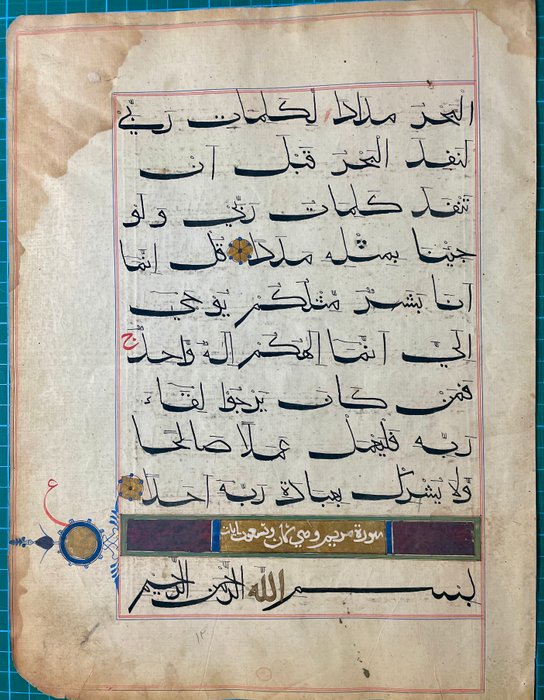 الْبَحْرُ مِدَادًا لِّكَلِمَاتِ رَبِّي
لَنَفِدَ الْبَحْرُ قَبْلَ أَنْ
تَنفَدَ كَلِمَاتُ رَبِّي وَلَوْ
جِئْنَا بِمِثْلِهِ مَدَدًا قُلْ إِنَّمَا
أَنَا بَشَرٌ مِّثْلُكُمْ يُوحَى
إِلَيَّ أَنَّمَا إِلَهُكُمْ إِلَهٌ وَاحِدٌ ج
فَمَنْ كَانَ يَرْجُوا لِقَاءَ
رَبِّهِ فَلْيَعْمَلْ عَمَلًا صَالِحًا
وَلَا يُشْرِكْ بِعِبَادَةِ رَبِّهِ أَحَدًا
ع
سورة مريم وهي ثمان وتسعون آيات
بِسْمِ اللَّهِ الرَّحْمَنِ الرَّحِيمِ